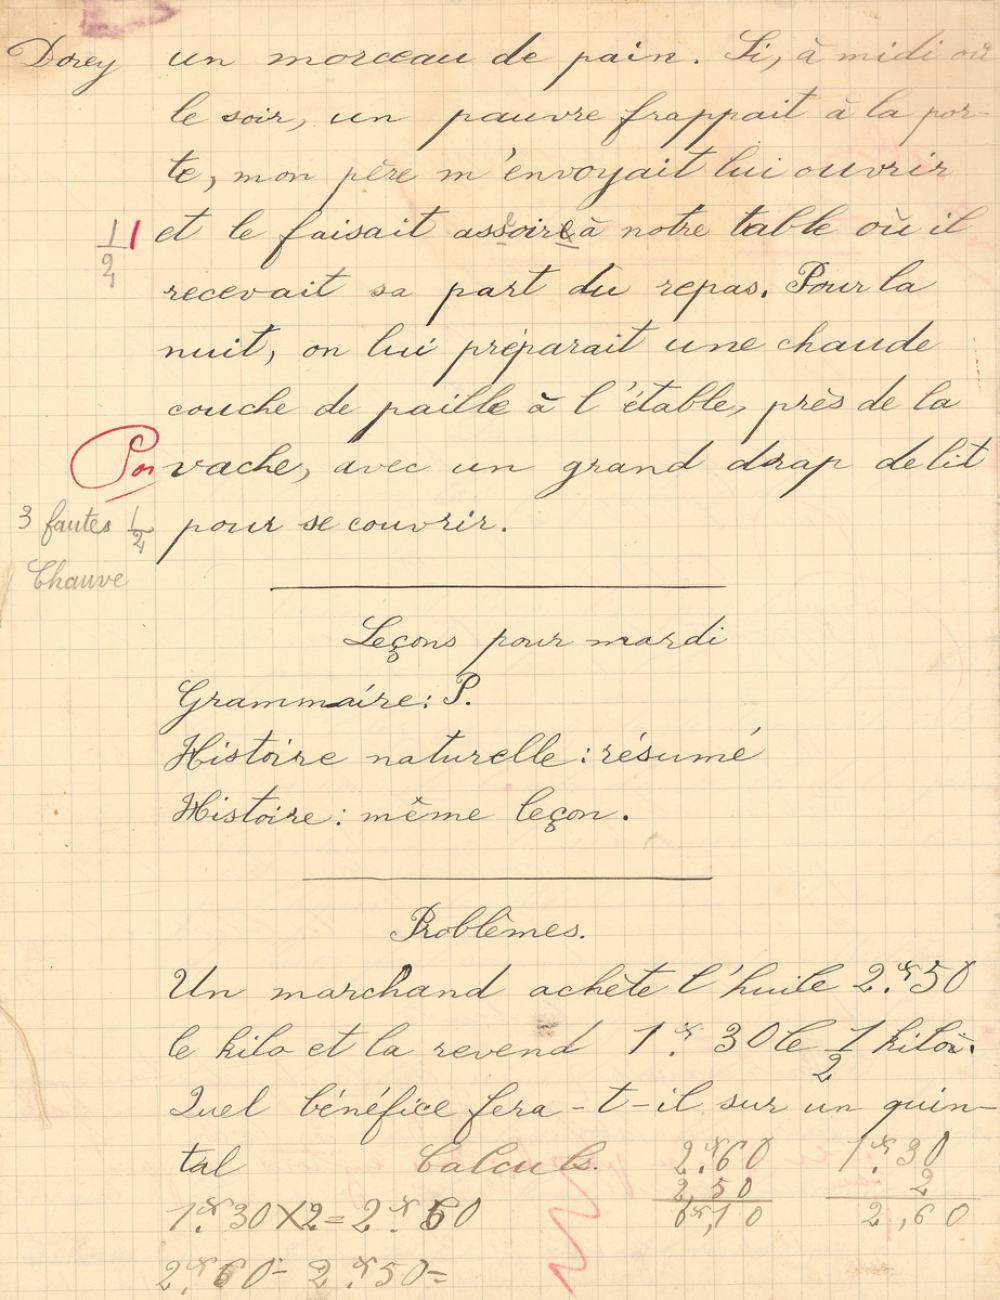 Dorey un morceau de pain. Si, à midi ou
le soir, un pauvre frappait à la por-
te, mon père m'envoyait lui ouvrir
1/2 1 et le faisait assoire à notre table où il
recevait sa part du repas. Pour la
nuit, on lui préparait une chaude
couche de paille à l'étable, près de la
vache, avec un grand drap de lit
3 fautes 1/2 pour se couvrir.
Chauve
Leçons pour mardi
Grammaire : P.
Histoire naturelle : résumé
Histoire : même leçon.
Problèmes.
Un marchand achète l'huile 2.fr 50
le kilo et la revend 1.fr 30 le 1/2 kilo.
Quel bénéfice fera-t-il sur un quin-
tal Calculs. 2.fr 60 1.fr 30
2,50 2
1.fr 30 X 2 = 2.fr 60 0fr,10 2,60
2.fr 60 - 2.fr 50 =